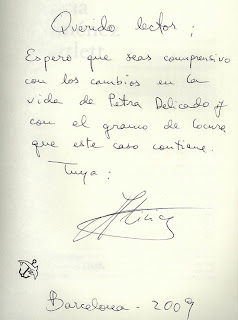 Querido lector:
Espero que seas comprensivo
con los cambios en la
vida de Petra Delicado y
con el gramo de locura
que este caso contiene.
Tuya:
Barcelona - 2009